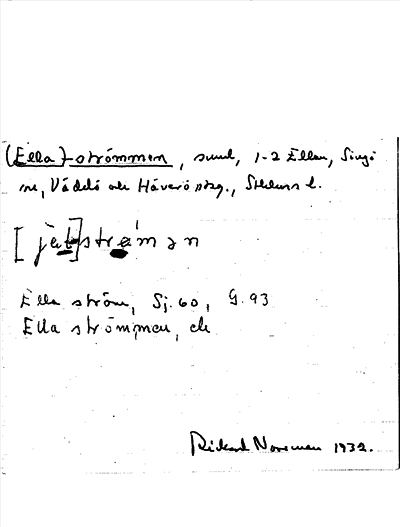 (Ella)-strömmen, sund, 1-2 Ellan, Singö
sn, Väddö och Häverö skg., Sthlms l.
[jät]strəmən
Ella ström, Sj. 60, G. 93
Ella strömmen, ek
Rickard Norrman 1932.